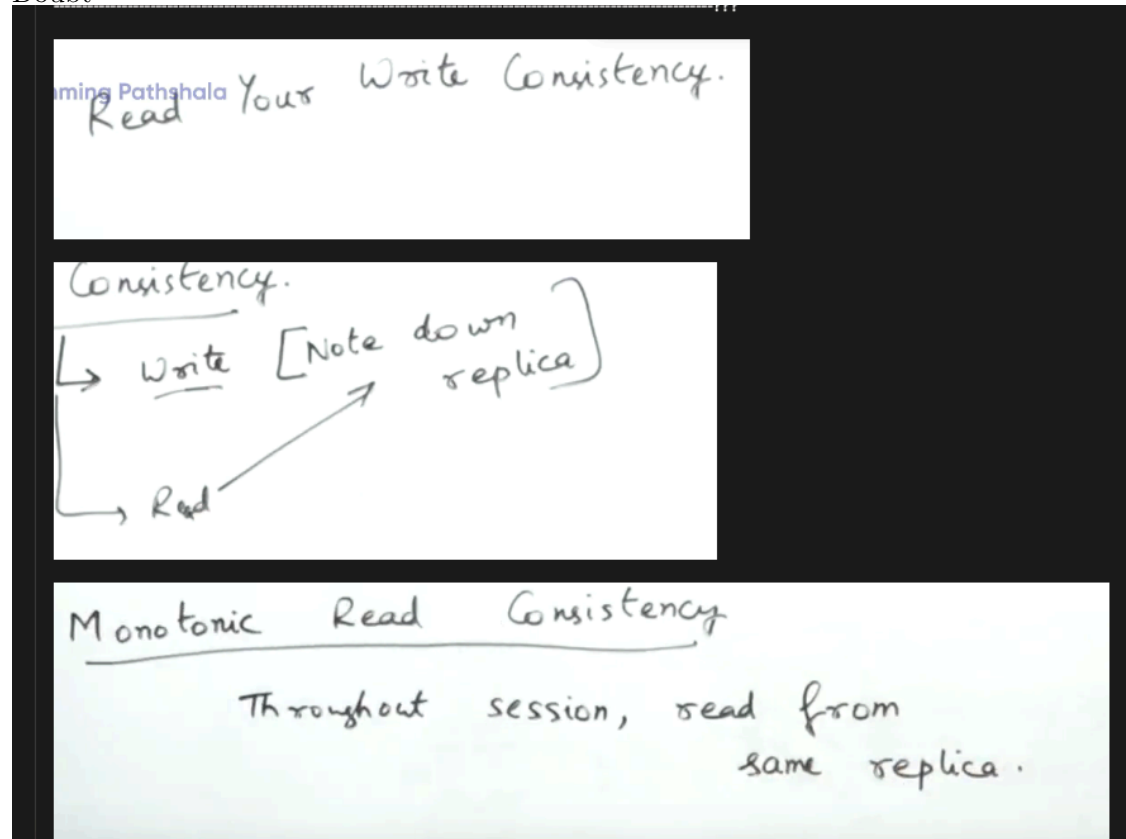 Doubt
---------------???
mming Pathshala
Read Your Write Consistency.
Consistency.
↳ Write [Note down replica]
→ Read
Monotonic Read Consistency
Throughout session, read from
same replica.